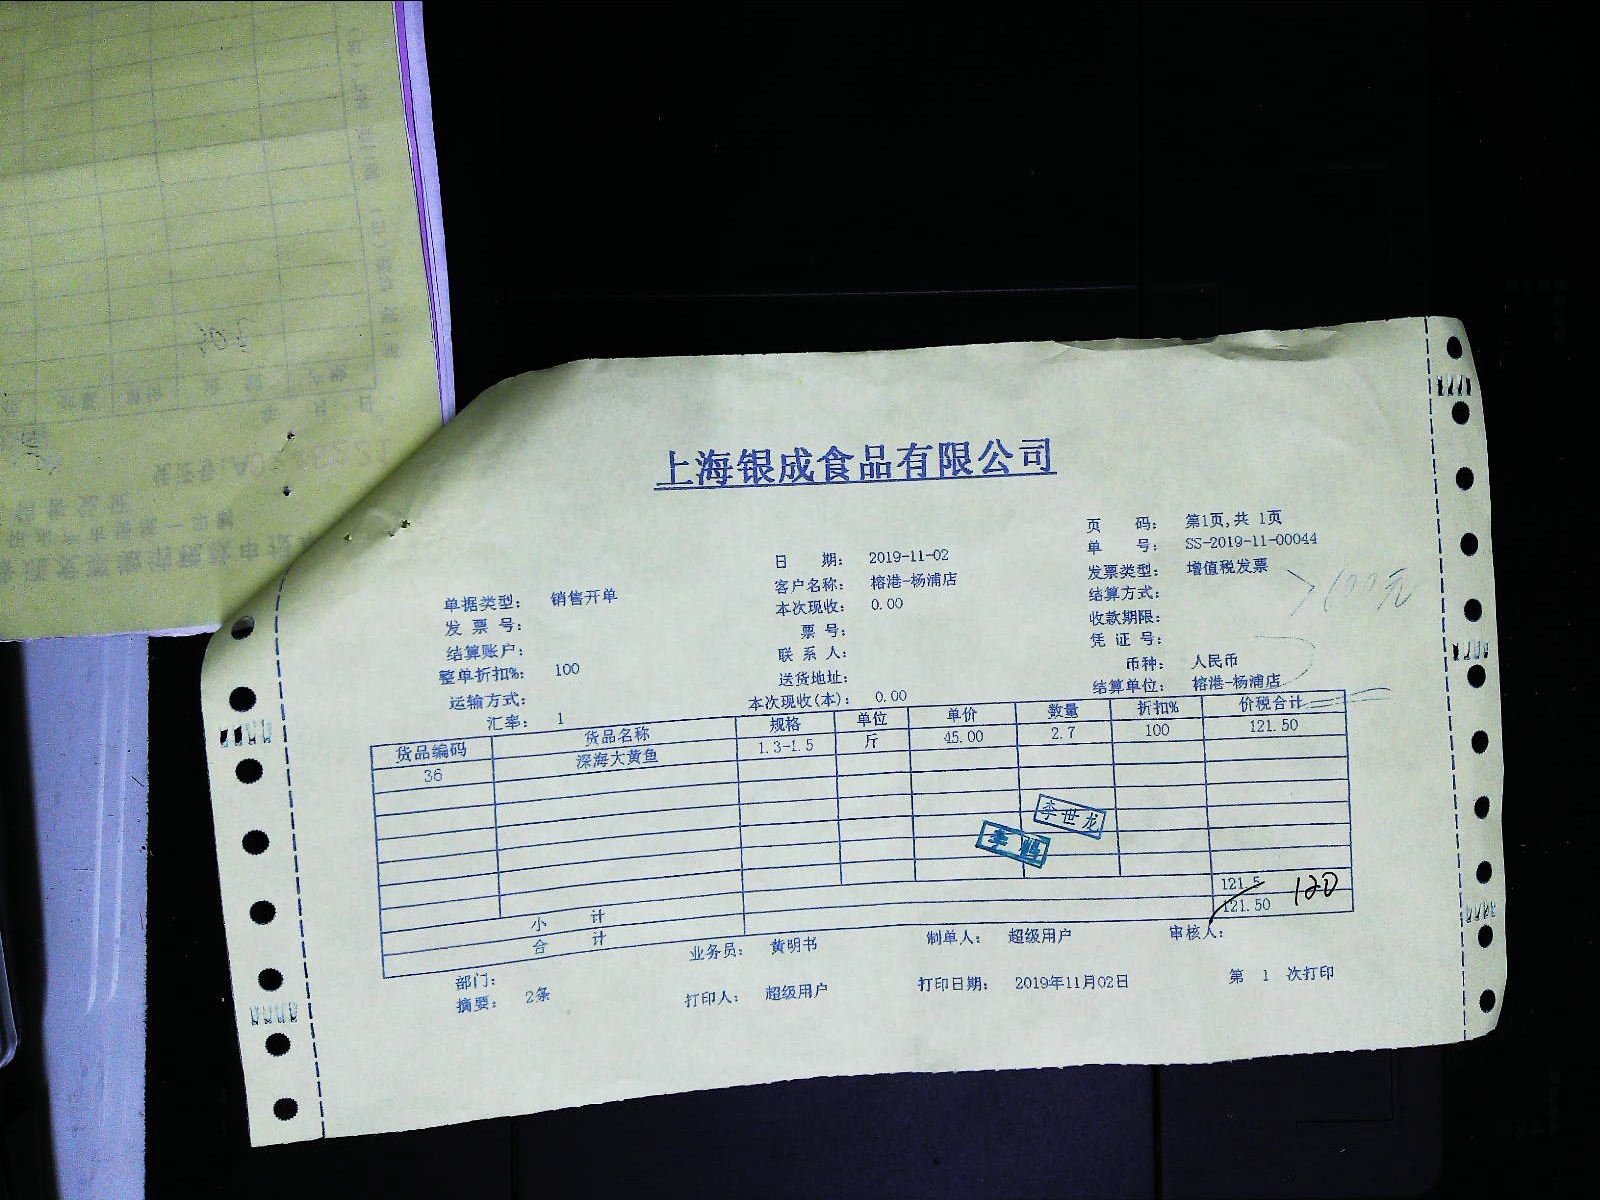 上海银成食品有限公司
页 码： 第1页,共 1页
单 号： SS-2019-11-00044
日 期： 2019-11-02
发票类型： 增值税发票
客户名称： 榕港-杨浦店
结算方式：
单据类型： 销售开单
本次现收： 0.00
收款期限：
发 票 号：
票 号：
凭 证 号：
结算账户：
联 系 人：
币种： 人民币
整单折扣%： 100
送货地址：
结算单位： 榕港-杨浦店
运输方式：
本次现收(本)： 0.00
汇率： 1
货品编码 货品名称 规格 单位 单价 数量 折扣% 价税合计
36 深海大黄鱼 1.3-1.5 斤 45.00 2.7 100 121.50
李世龙
小 计 121.5 120
合 计 121.50
部门： 业务员： 黄明书 制单人： 超级用户 审核人：
摘要： 2条 打印人： 超级用户 打印日期： 2019年11月02日 第 1 次打印